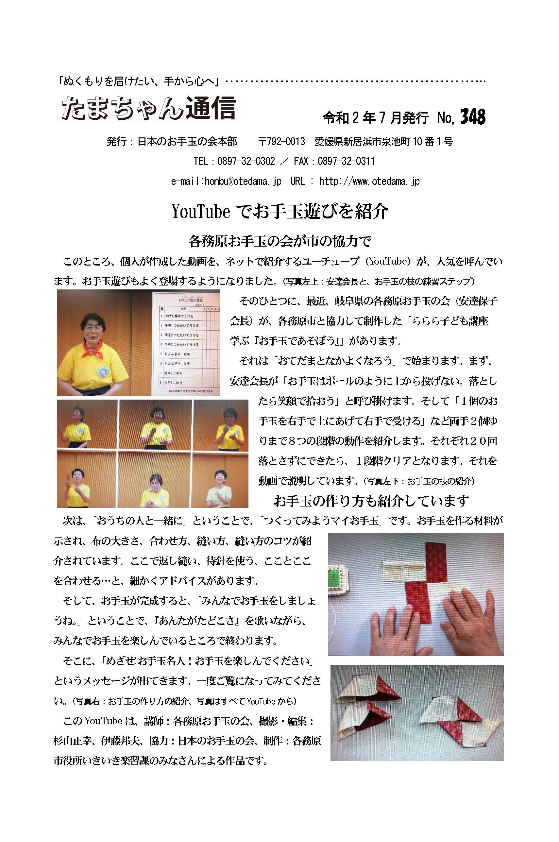 「ぬくもりを届けたい、手から心へ」‥‥‥‥‥‥‥‥‥‥‥‥‥‥‥‥‥‥‥‥‥‥‥‥‥…
たまちゃん通信
令和2年7月発行 No.348
発行：日本のお手玉の会本部　〒792-0013　愛媛県新居浜市泉池町10番1号
TEL：0897-32-0302 ／ FAX：0897-32-0311
e-mail:honbu@otedama.jp　URL : http://www.otedama.jp
YouTubeでお手玉遊びを紹介
各務原お手玉の会が市の協力で
このところ、個人が作成した動画を、ネットで紹介するユーチューブ（YouTube）が、人気を呼んでい
ます。お手玉遊びもよく登場するようになりました。（写真左上：安達会長と、お手玉の技の練習ステップ）
そのひとつに、最近、岐阜県の各務原お手玉の会（安達保子
会長）が、各務原市と協力して制作した「ららら子ども講座
学ぶ『お手玉であそぼう』」があります。
それは「おてだまとなかよくなろう」で始まります。まず、
安達会長が「お手玉はボールのように上から投げない。落とし
たら笑顔で拾おう」と呼び掛けます。そして「１個のお
手玉を右手で上にあげて右手で受ける」など両手２個ゆ
りまで８つの段階の動作を紹介します。それぞれ２０回
落とさずにできたら、１段階クリアとなります。それを
動画で説明しています。（写真左下：お手玉の技の紹介）
お手玉の作り方も紹介しています
次は、「おうちの人と一緒に」ということで、「つくってみようマイお手玉」です。お手玉を作る材料が
示され、布の大きさ、合わせ方、縫い方、縫い方のコツが紹
介されています。ここで返し縫い、待針を使う、こことここ
を合わせる…と、細かくアドバイスがあります。
そして、お手玉が完成すると、「みんなでお手玉をしましょ
うね。」ということで、『あんたがたどこさ』を歌いながら、
みんなでお手玉を楽しんでいるところで終わります。
そこに、「めざせ！お手玉名人！お手玉を楽しんでください」
というメッセージが出てきます。一度ご覧になってみてくださ
い。（写真右：お手玉の作り方の紹介、写真はすべてYouTubeから）
このYouTubeは、講師：各務原お手玉の会、撮影・編集：
杉山正幸、伊藤邦夫、協力：日本のお手玉の会、制作：各務原
市役所いきいき楽習課のみなさんによる作品です。